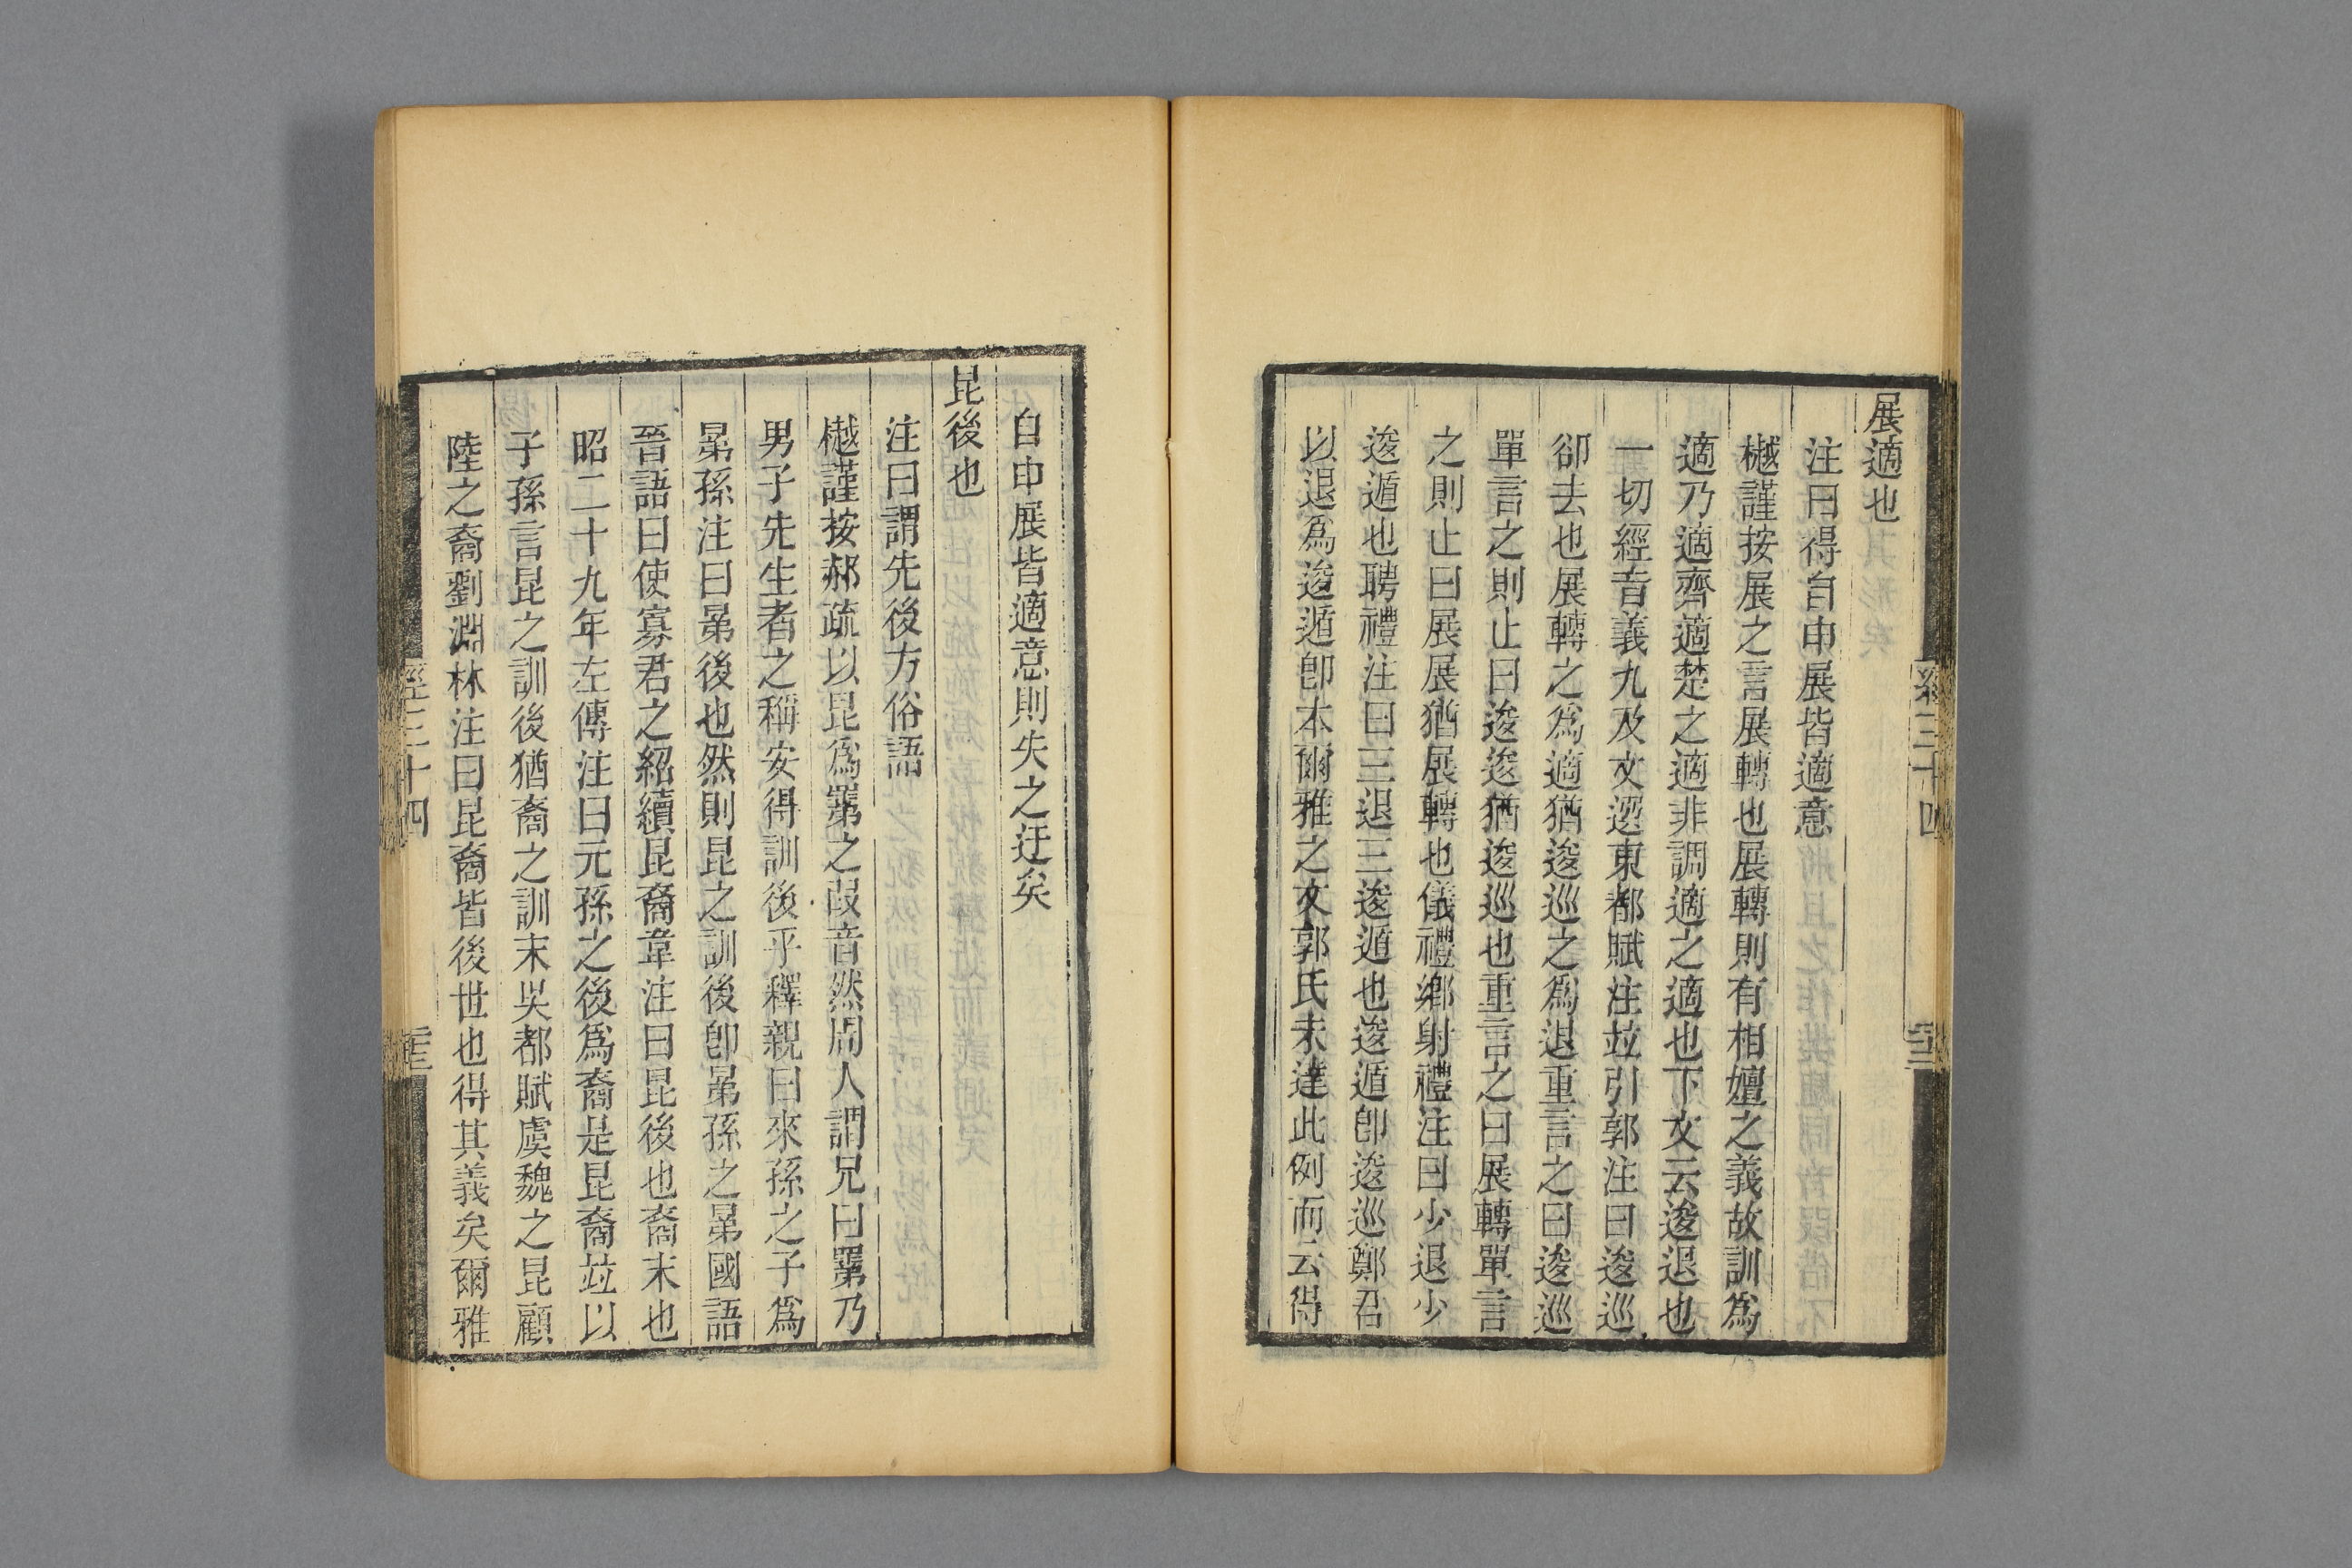 展適也
注曰得自申展皆適意
樾謹按展之言展轉也展轉則有相嬗之義故訓爲
適乃適齊適楚之適非調適之適也下文云逡退也
一切經音義九及文選東都賦注竝引郭注曰逡巡
卻去也展轉之爲適猶逡巡之爲退重言之曰逡巡
單言之則止曰逡逡猶逡巡也重言之曰展轉單言
之則止曰展展猶展轉也儀禮鄉射禮注曰少退少
逡遁也聘禮注曰三退三逡遁也逡遁卽逡巡鄭君
以退爲逡遁卽本爾雅之文郭氏未達此例而云得
經三十四
自申展皆適意則失之迂矣
昆後也
注曰謂先後方俗語
樾謹按郝疏以昆爲罤之叚音然周人謂兄曰罤乃
男子先生者之稱安得訓後乎釋親曰來孫之子爲
晜孫注曰晜後也然則昆之訓後卽晜孫之晜國語
晉語曰使寡君之紹續昆裔韋注曰昆後也裔末也
昭二十九年左傳注曰元孫之後爲裔是昆裔竝以
子孫言昆之訓後猶裔之訓末吳都賦虞魏之昆顧
陸之裔劉淵林注曰昆裔皆後世也得其義矣爾雅
經三十四